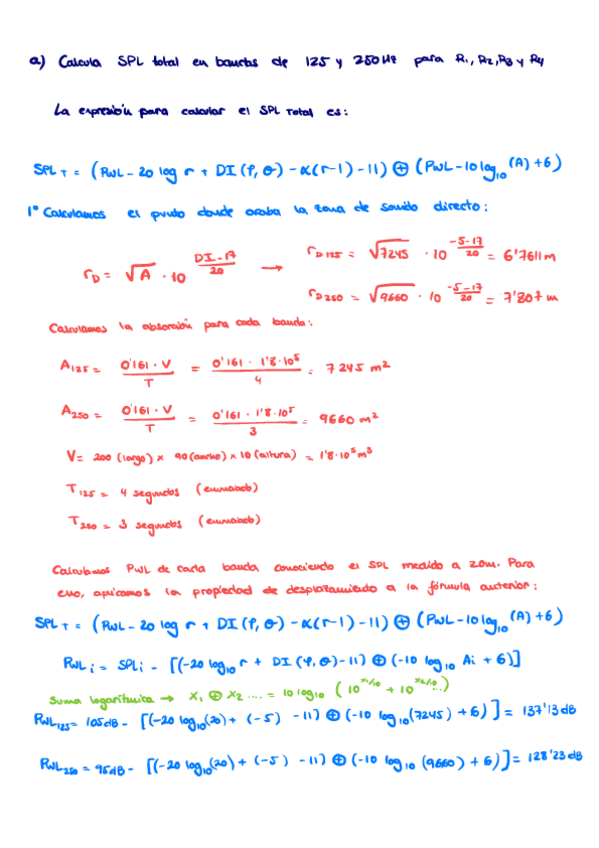 a) Calcula SPL total en bandas de 125 y 250 Hz para R1, R2, R3 y R4
La expresión para calcular el SPL TOTAL es:
SPL T = (PWL - 20 log r + DI (φ, θ) - α(r-1) - 11) ⊕ (PWL - 10 log10 (A) + 6)
1º Calculamos el punto donde acaba la zona de sonido directo:
rD = √A · 10^((DI-17)/20) → rD 125 = √7245 · 10^((-5-17)/20) = 6'7611 m
rD 250 = √9660 · 10^((-5-17)/20) = 7'807 m
Calculamos la absorción para cada banda:
A125 = 0'161 · V / T = 0'161 · 1'8 · 10^5 / 4 = 7245 m²
A250 = 0'161 · V / T = 0'161 · 1'8 · 10^5 / 3 = 9660 m²
V = 200 (largo) x 90 (ancho) x 10 (altura) = 1'8 · 10^5 m³
T125 = 4 segundos (enunciado)
T250 = 3 segundos (enunciado)
Calculamos PWL de cada banda conociendo el SPL medido a 20m. Para
ello, aplicamos la propiedad de desplazamiento a la fórmula anterior:
SPL T = (PWL - 20 log r + DI (φ, θ) - α(r-1) - 11) ⊕ (PWL - 10 log10 (A) + 6)
PWL i = SPL i - [(-20 log10 r + DI (φ, θ) - 11) ⊕ (-10 log10 Ai + 6)]
Suma logarítmica → x1 ⊕ x2 .... = 10 log10 (10^(x1/10) + 10^(x2/10) ...)
PWL125 = 105 dB - [(-20 log10(20) + (-5) - 11) ⊕ (-10 log10(7245) + 6)] = 137'13 dB
PWL250 = 96 dB - [(-20 log10(20) + (-5) - 11) ⊕ (-10 log10 (9660) + 6)] = 128'23 dB